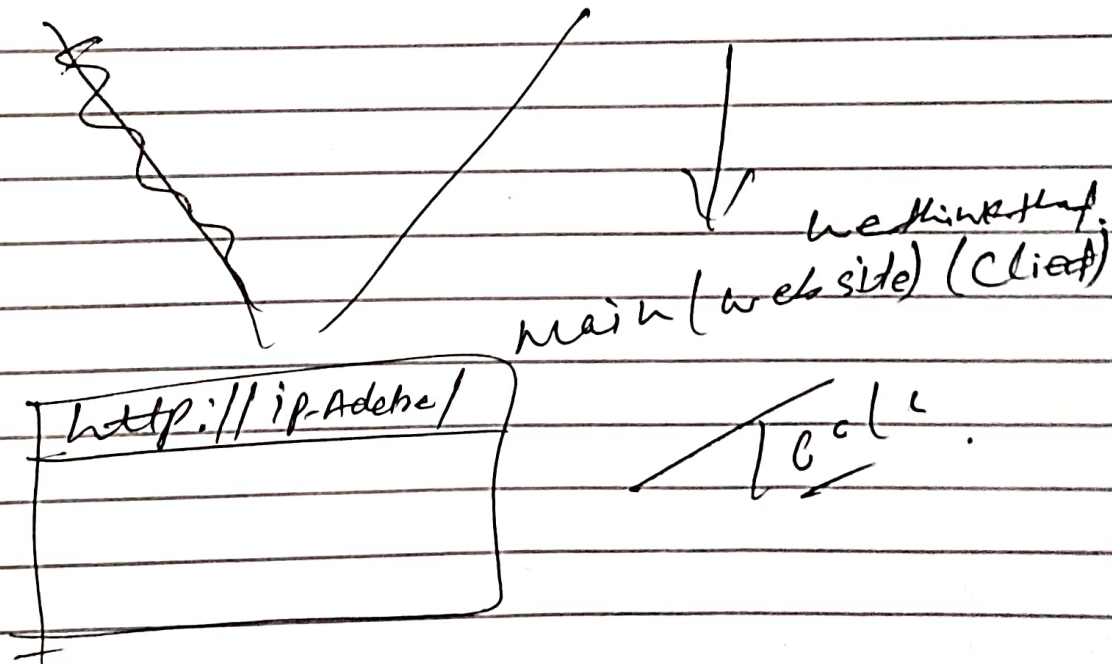 we think that.
Main (website) (Client)
http://ip-Adebe/
local